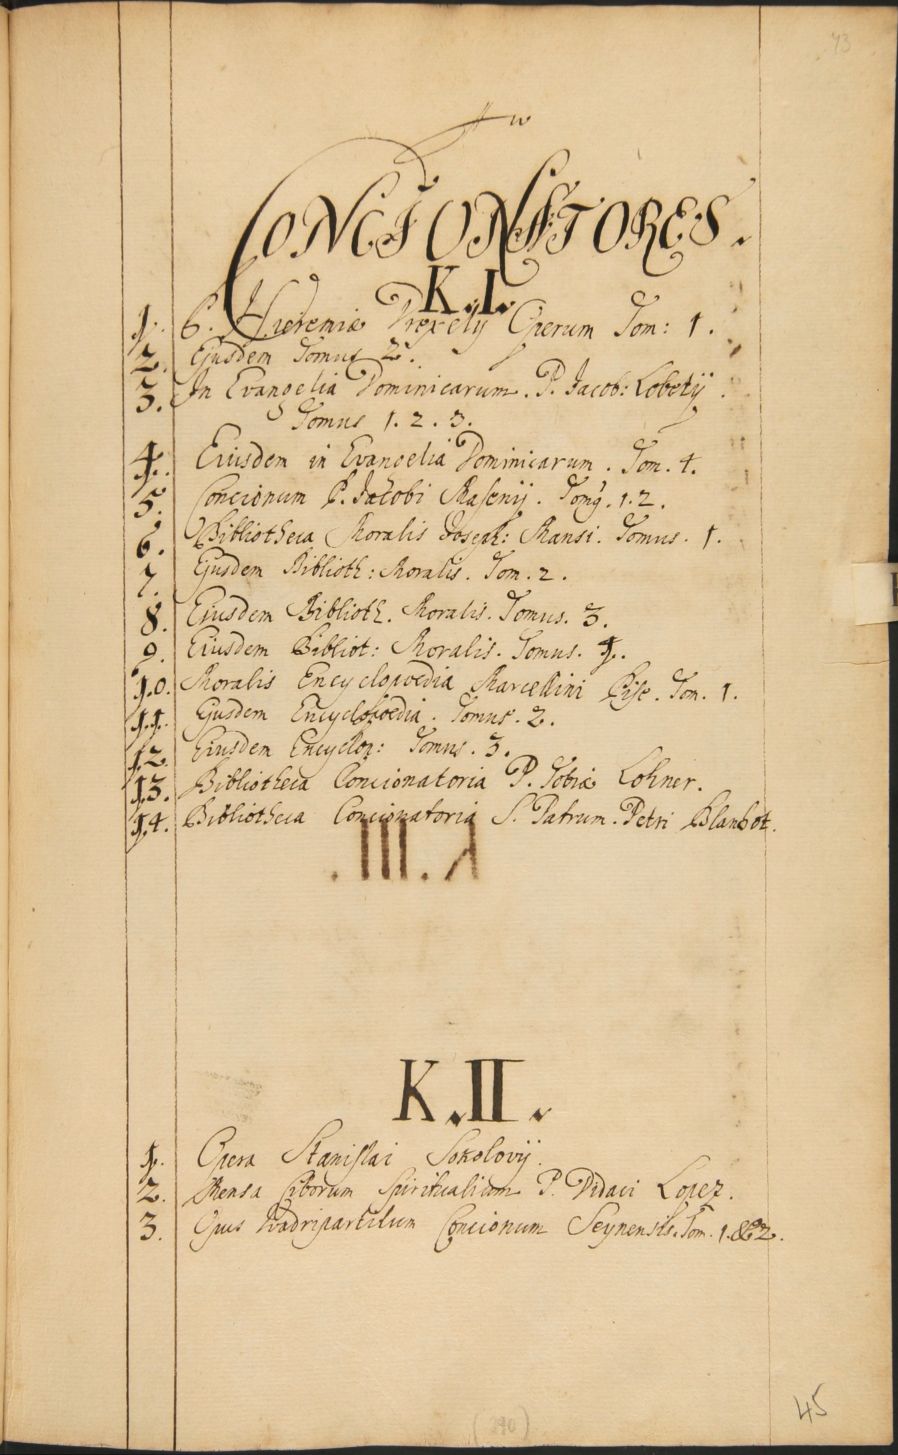 43
CONCIONATORES.
K.I.
1. P. Hieremiæ Drexelij Operum Tom: 1.
2. Ejusdem Tomus 2.
3. In Evangelia Dominicarum. P. Jacob: Lobetij.
Tomus 1. 2. 3.
4. Eiusdem in Evangelia Dominicarum. Tom. 4.
5. Concionum P. Jacobi Masenij. Tomg. 1. 2.
6. Bibliotheca Moralis Joseph: Mansi. Tomus. 1.
7. Ejusdem Biblioth: Moralis. Tom. 2.
8. Eiusdem Biblioth. Moralis. Tomus. 3.
9. Eiusdem Bibliot: Moralis. Tomus. 4.
10. Moralis Encyclopoedia Marcellini Pise. Tom. 1.
11. Ejusdem Encyclopoedia. Tomus. 2.
12. Eiusdem Encyclop: Tomus. 3.
13. Bibliotheca Concionatoria P. Tobiæ Lohner.
14. Bibliotheca Concionatoria S. Patrum. Petri Blanbot.
K.II.
1. Opera Stanislai Sokolovij.
2. Mensa Ciborum Spiritualium P. Didaci Lopez.
3. Opus Quadripartitum Concionum Seynensis. Tom. 1. & 2.
45
(290)